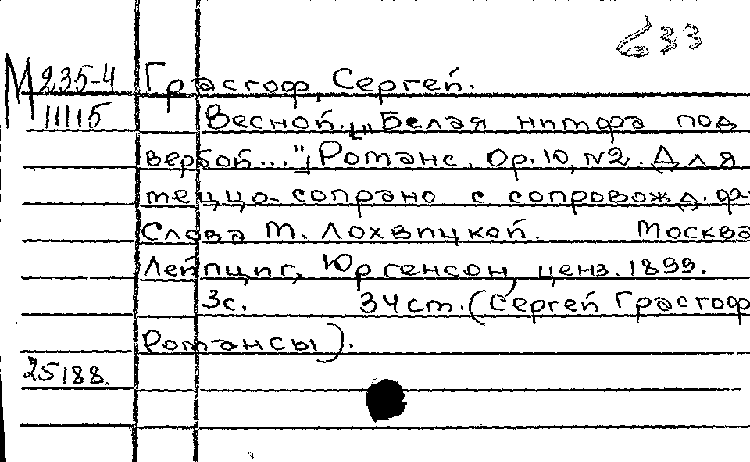 633
М 235-4 Грасгоф, Сергей.
11115 Весной. „Белая нимфа под
вербой...“, Романс, Op. 10, N2. Для
меццо-сопрано с сопровожд. ф-
Слова М. Лохвицкой. Москва
Лейпциг, Юргенсон, ценз. 1899.
3с. 34 cm. (Сергей Грасгоф
Романсы).
25188.